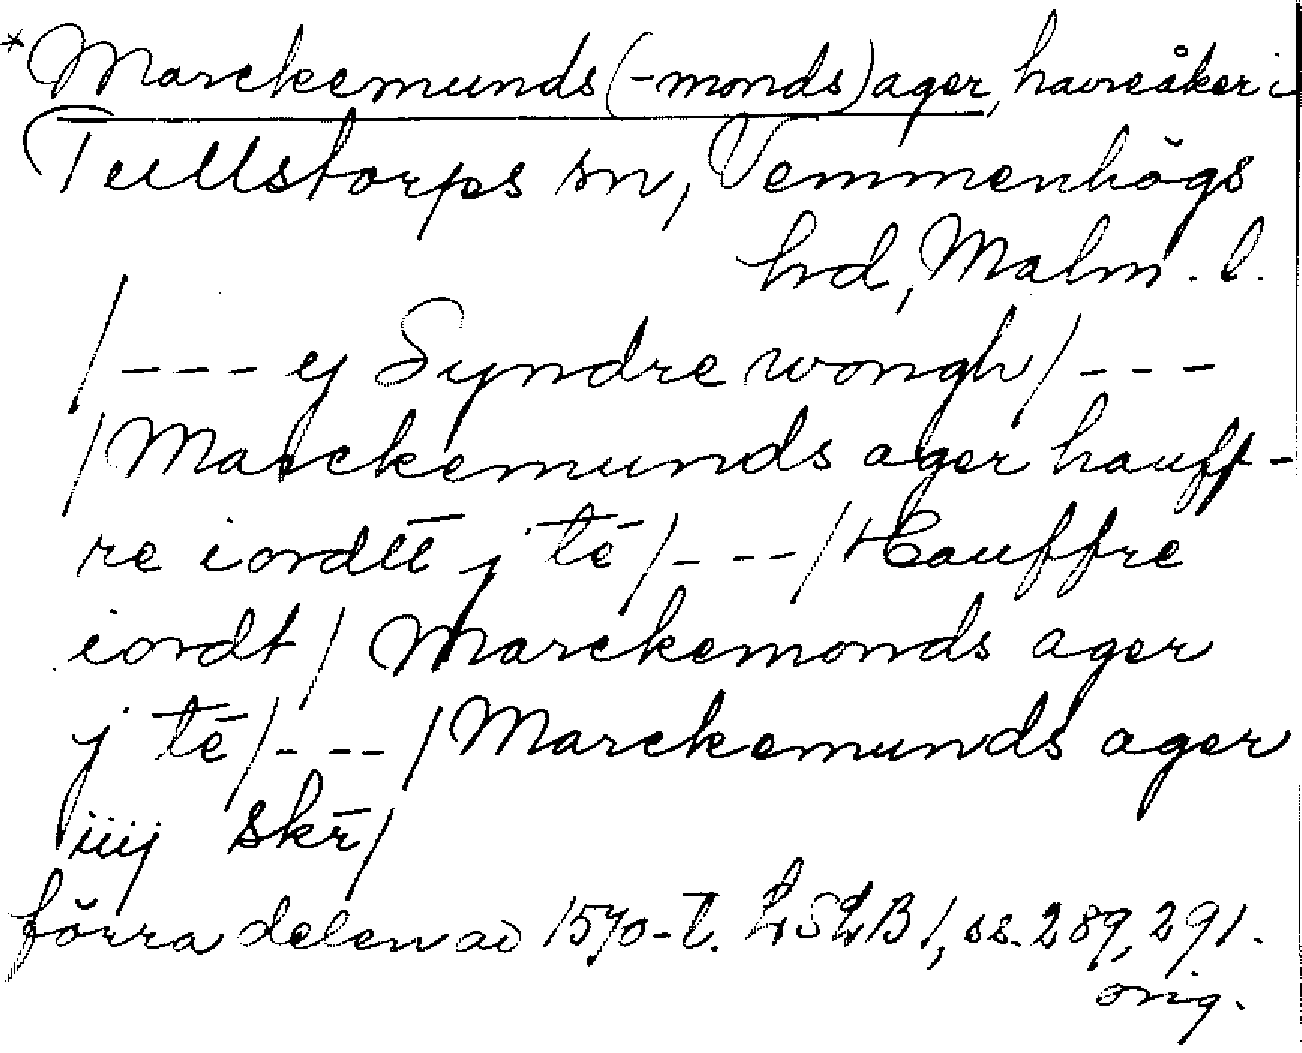 *Marckemunds(-monds)ager, havreåker i
Tullstorps sn, Vemmenhögs
hd, Malm. l.
/--- ej Syndre wongh/ ---
/Marckemunds ager hauff-
re iordtt̄ j tē/ --- /Hauffre
iordt/ Marckemonds ager
j tē/ --- /Marckemunds ager
iiij skr̄/
förra delen av 1570-t. LSLB 1, ss. 289, 291.
orig.